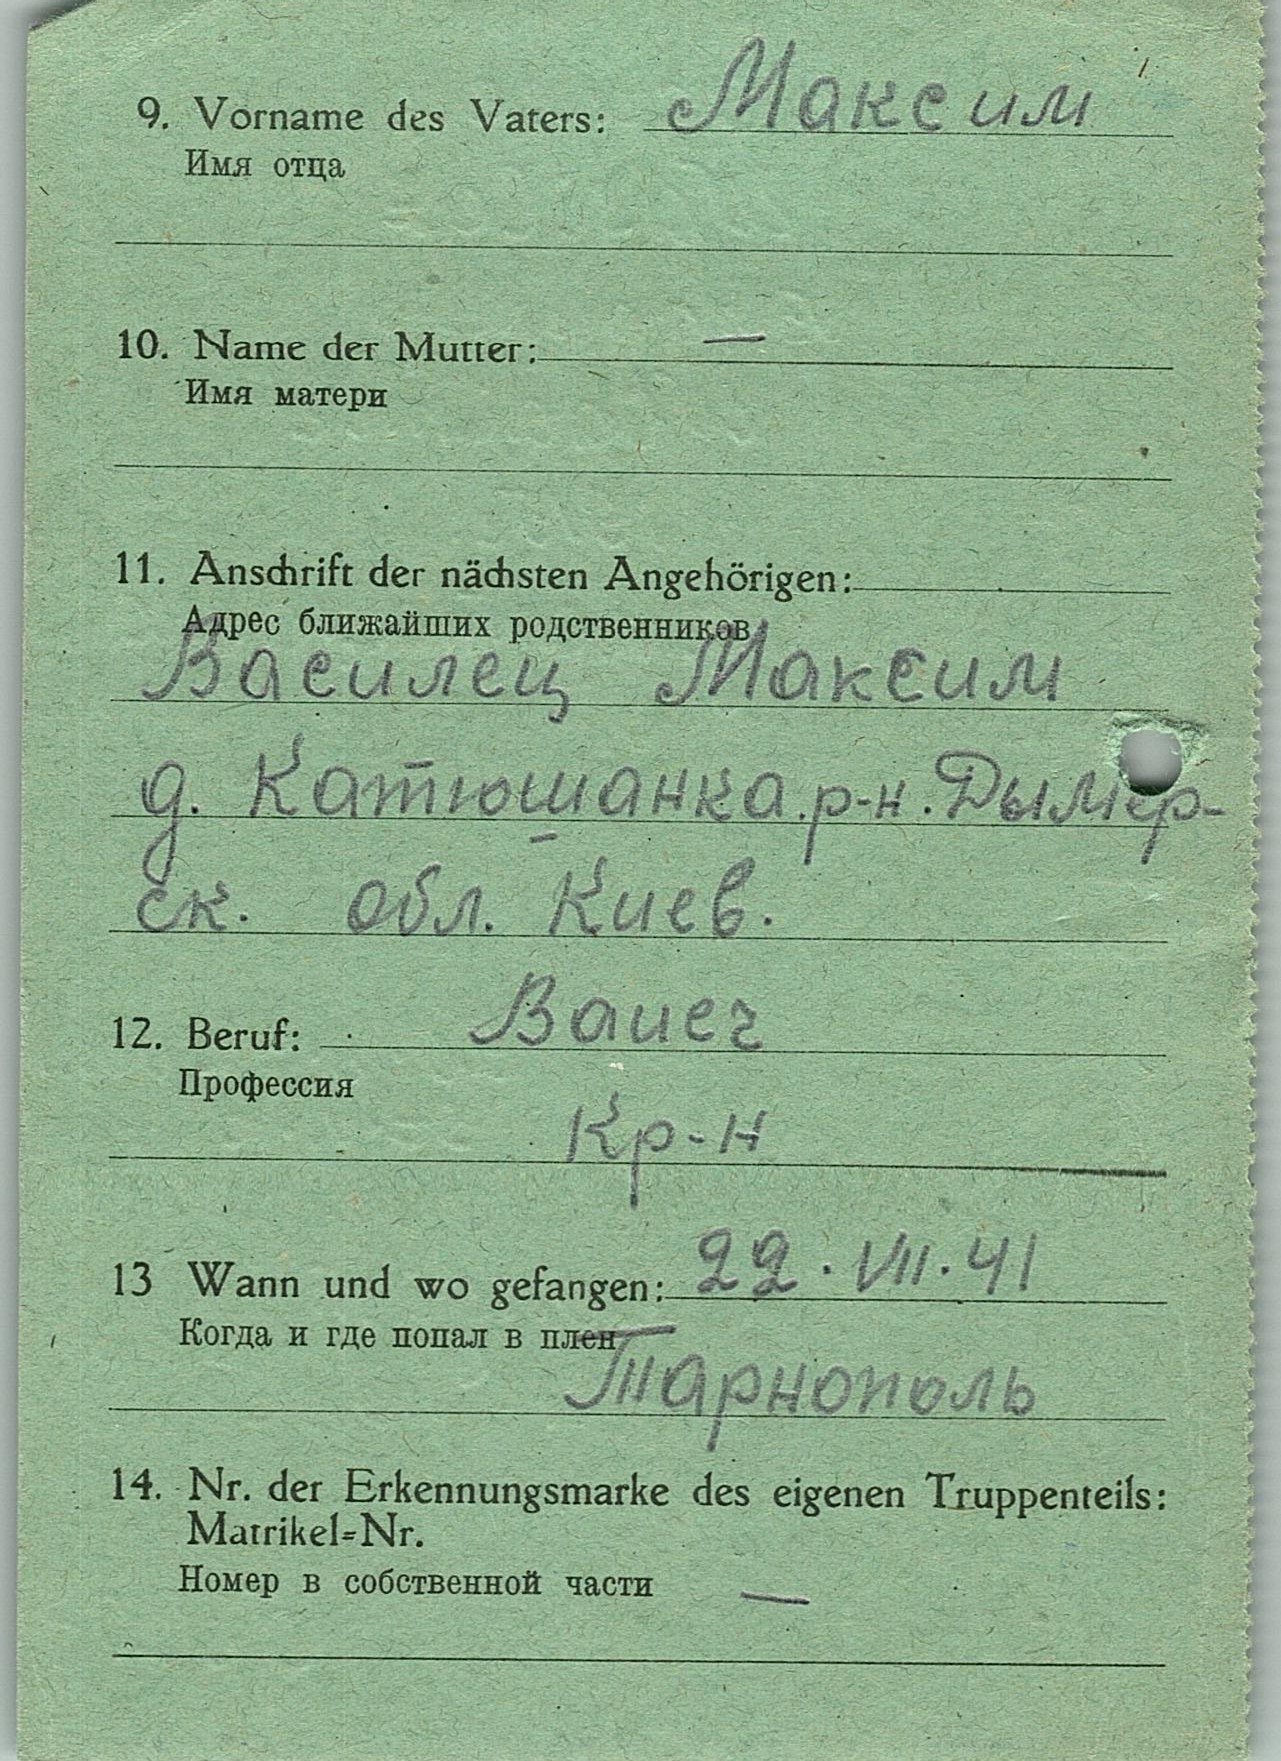 9. Vorname des Vaters: Максим
Имя отца
10. Name der Mutter: —
Имя матери
11. Anschrift der nächsten Angehörigen:
Адрес ближайших родственников
Василец Максим
д. Катюшанка р-н. Дымер-
ск. обл. Киев.
12. Beruf: Вауеч
Профессия
Кр-н
13 Wann und wo gefangen: 22.VII.41
Когда и где попал в плен
Тарнополь
14. Nr. der Erkennungsmarke des eigenen Truppenteils:
Matrikel=Nr.
Номер в собственной части —